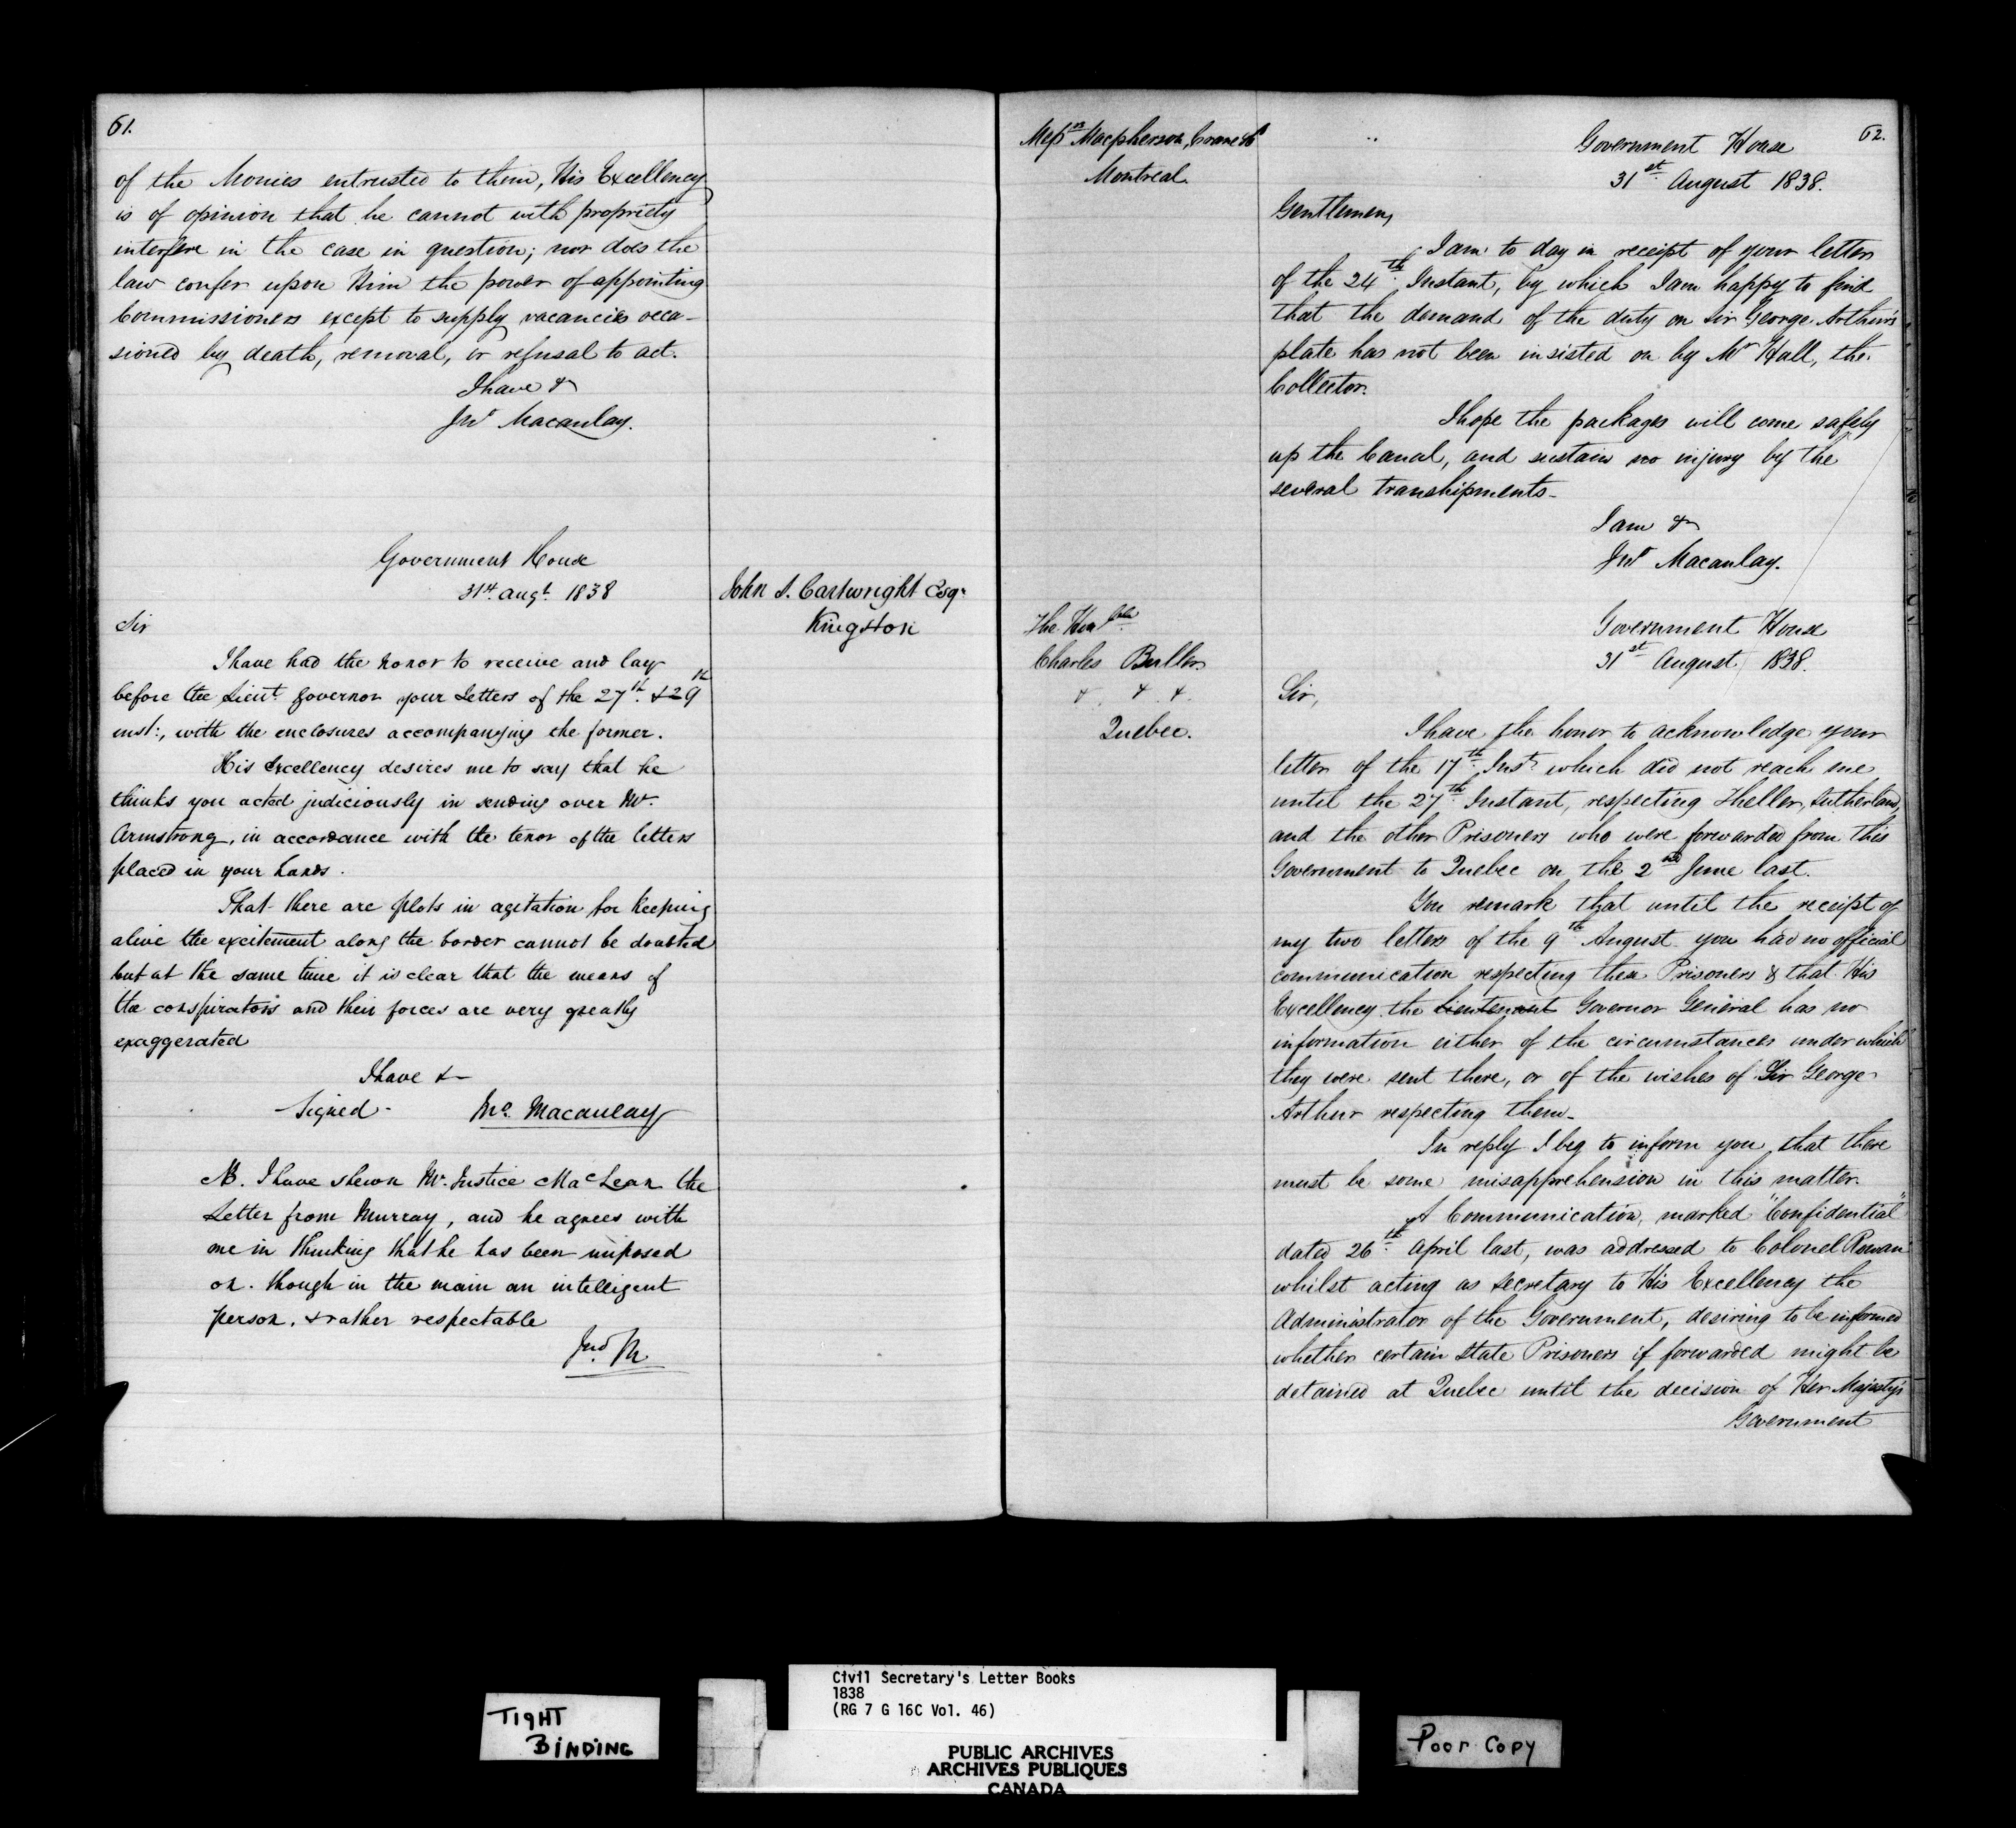 61.
of the Monies entrusted to them, His Excellency
is of opinion that he cannot with propriety
interfere in the case in question; nor does the
law confer upon Him the power of appointing
Commissioners except to supply vacancies occa-
sioned by death, removal, or refusal to act.
I have &
Jno Macaulay.
Government House
31st. Augt. 1838
John S. Cartwright Esqr
Kingston
Sir
I have had the honor to receive and lay
before the Lieut. Governor your Letters of the 27th. & 29th
inst:, with the enclosures accompanying the former.
His Excellency desires me to say that he
thinks you acted judiciously in sending over Mr.
Armstrong, in accordance with the tenor of the letters
placed in your hands.
That there are plots in agitation for keeping
alive the excitement along the border cannot be doubted
but at the same time it is clear that the means of
the conspirators and their forces are very greatly
exaggerated
I have &-
-Signed- Jno. Macaulay
NB. I have shewn Mr. Justice MacLean the
Letter from Murray, and he agrees with
me in thinking that he has been imposed
on. though in the main an intelligent
person, & rather respectable
Jno. M
62.
Messrs Macpherson, Crane & Co
Montreal.
Government House
31st. August 1838.
Gentlemen,
I am to day in receipt of your letter
of the 24th. Instant, by which I am happy to find
that the demand of the duty on Sir George Arthur's
plate has not been insisted on by Mr Hall, the
Collector.
I hope the packages will come safely
up the Canal, and sustain no injury by the
several transhipments-
I am &
Jno Macaulay.
The Honble.
Charles Buller
&. &. &.
Quebec.
Government House
31st August 1838.
Sir,
I have the honor to acknowledge your
letter of the 17th. Inst. which did not reach me
until the 27th. Instant, respecting Theller, Sutherland,
and the other Prisoners who were forwarded from this
Government to Quebec on the 2nd June last.
You remark that until the receipt of
my two letters of the 9th August you had no official
communication respecting these Prisoners & that His
Excellency the Lieutenant Governor General has no
information either of the circumstances under which
they were sent there, or of the wishes of Sir George
Arthur respecting them-
In reply I beg to inform you that there
must be some misapprehension in this matter.
A Communication, marked "Confidential"
dated 26th. April last, was addressed to Colonel Rowan
whilst acting as secretary to His Excellency the
Administrator of the Government, desiring to be informed
whether certain State Prisoners if forwarded might be
detained at Quebec until the decision of Her Majesty's
Government
TIGHT
BINDING
Civil Secretary's Letter Books
1838
(RG 7 G 16C Vol. 46)
PUBLIC ARCHIVES
ARCHIVES PUBLIQUES
CANADA
Poor Copy